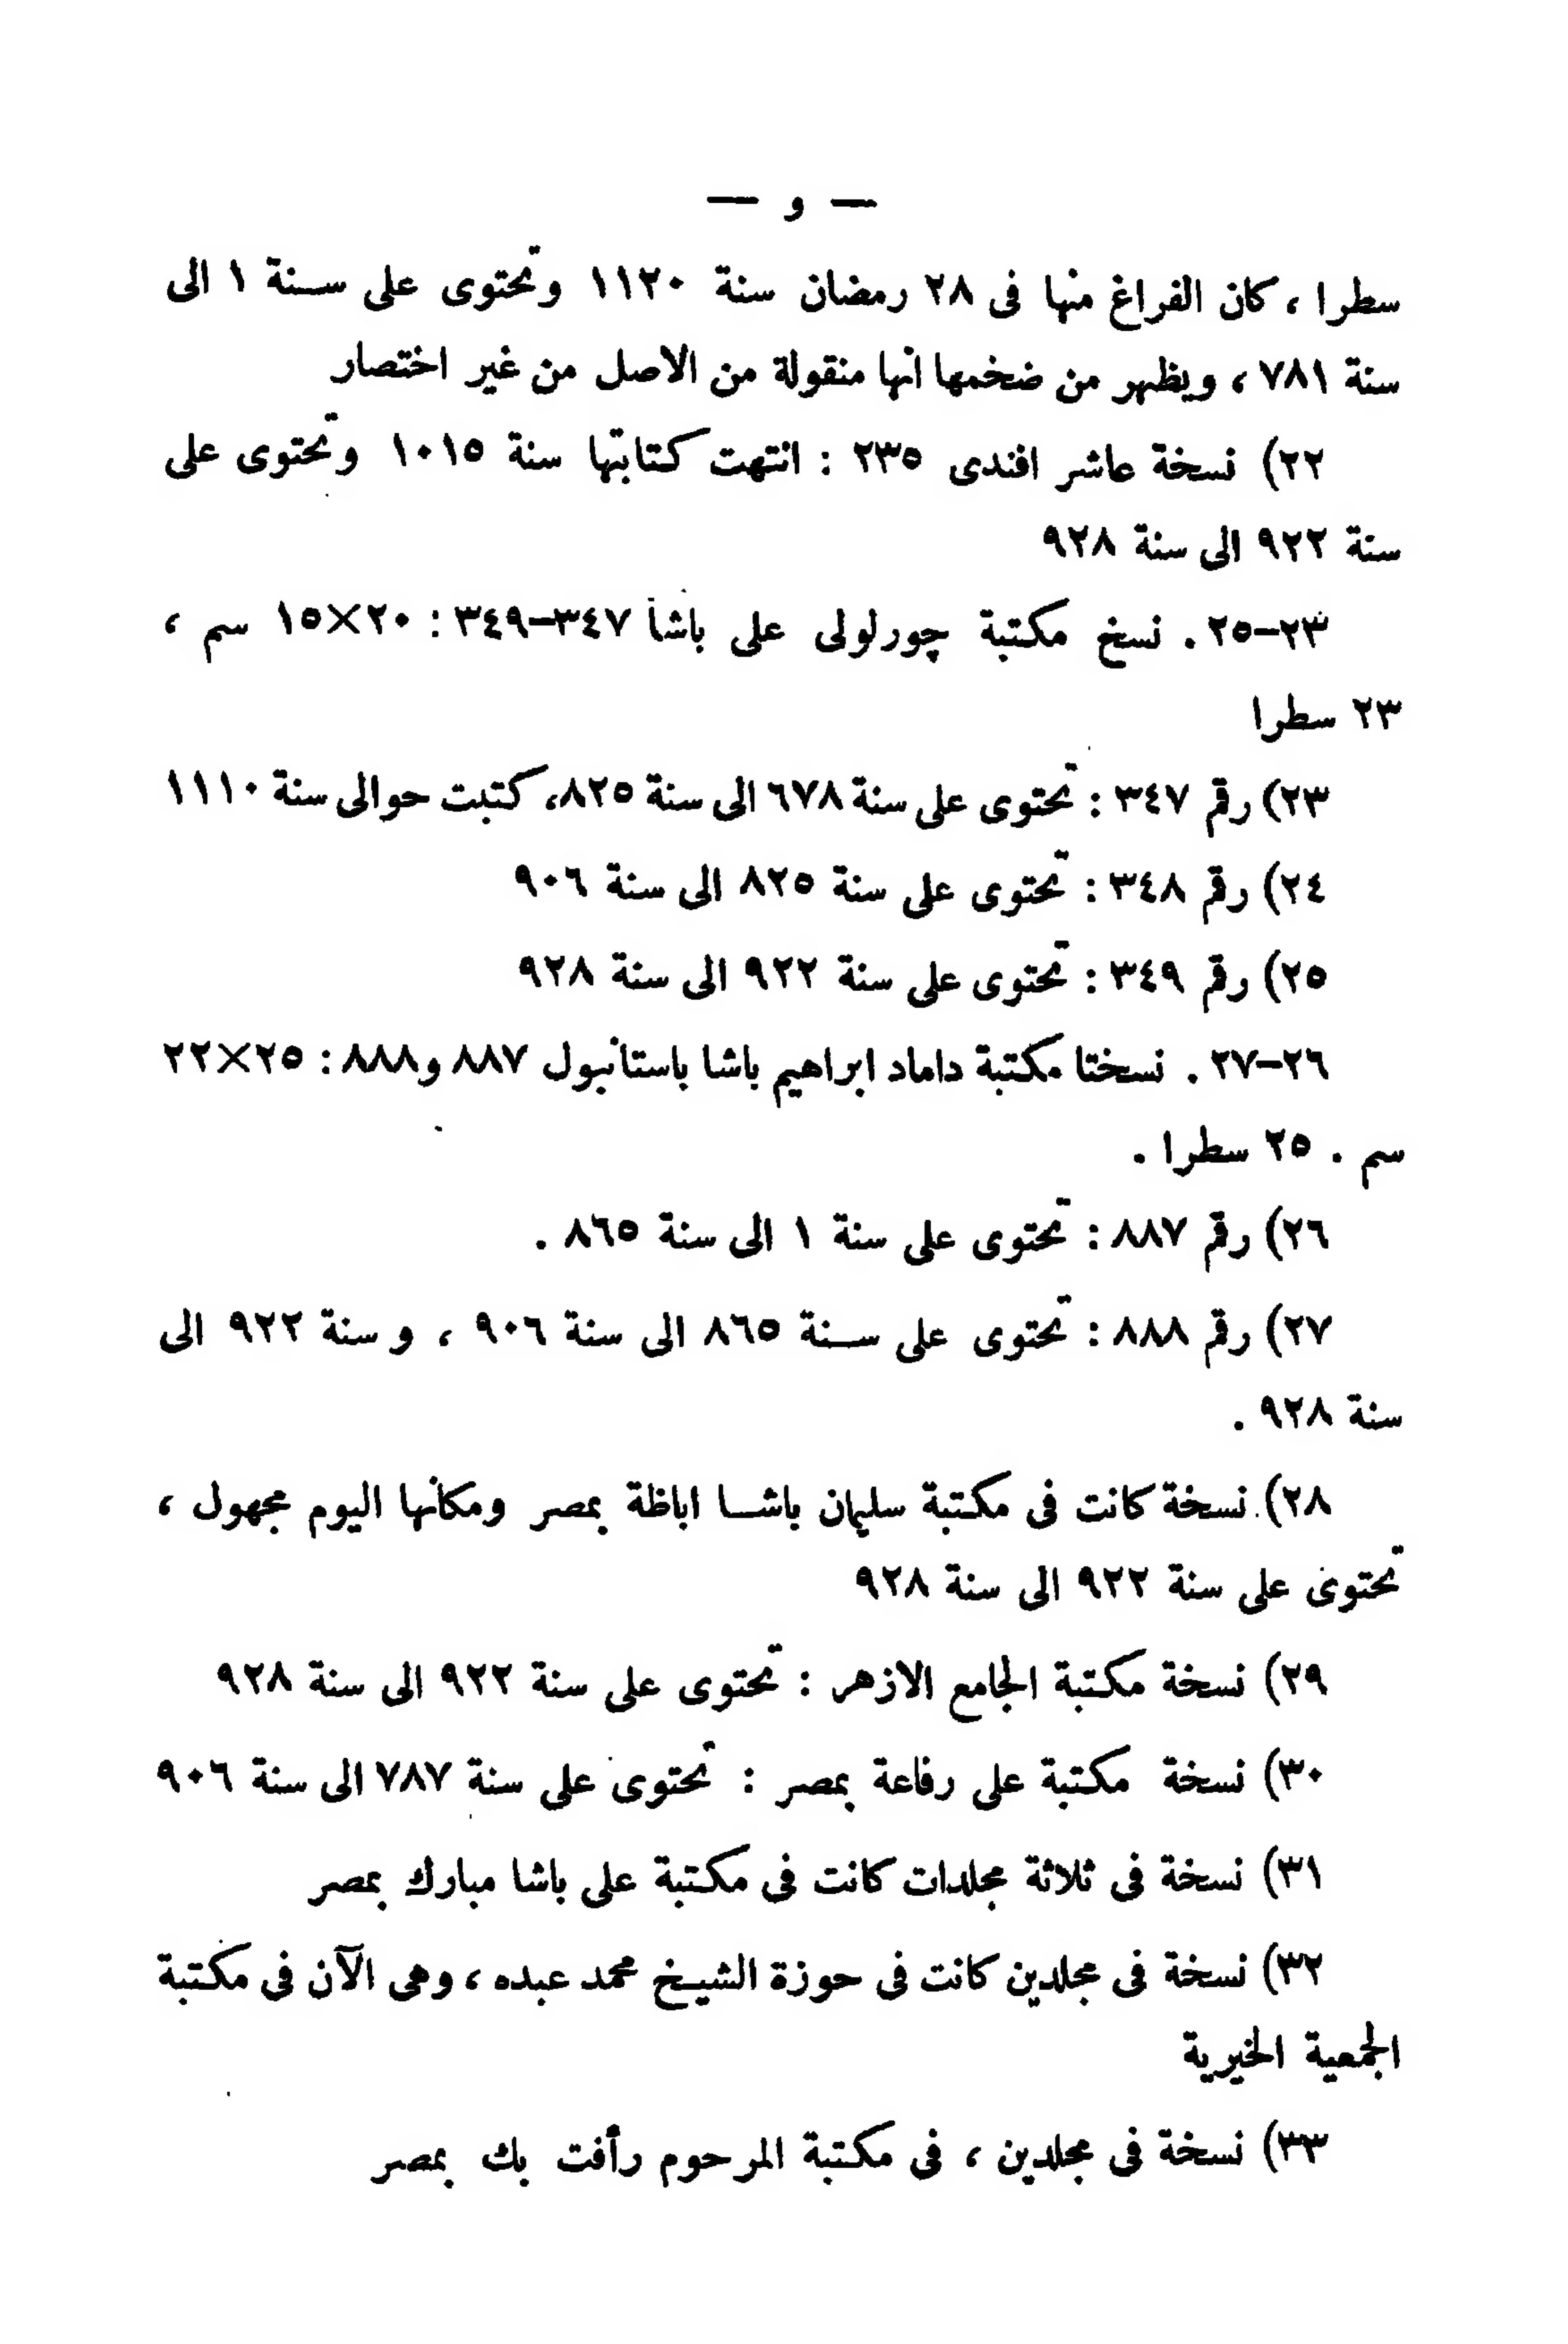 — و —
سطرا ، كان الفراغ منها فى ٢٨ رمضان سنة ١١٢٠ وتحتوى على سـنة ١ الى
سنة ٧٨١ ، ويظهر من ضخمها انها منقولة من الاصل من غير اختصار
٢٢) نسخة عاشر افندى ٢٣٥ : انتهت كتابتها سنة ١٠١٥ وتحتوى على
سنة ٩٢٢ الى سنة ٩٢٨
٢٣–٢٥ . نسخ مكتبة چورلولى على باشا ٣٤٧–٣٤٩ : ٢٠×١٥ سم ،
٢٣ سطرا
٢٣) رقم ٣٤٧ : تحتوى على سنة ٦٧٨ الى سنة ٨٢٥، كتبت حوالى سنة ١١١٠
٢٤) رقم ٣٤٨ : تحتوى على سنة ٨٢٥ الى سنة ٩٠٦
٢٥) رقم ٣٤٩ : تحتوى على سنة ٩٢٢ الى سنة ٩٢٨
٢٦–٢٧ . نسختا مكتبة داماد ابراهيم باشا باستانبول ٨٨٧ و٨٨٨ : ٢٥×٢٢
سم . ٢٥ سطرا .
٢٦) رقم ٨٨٧ : تحتوى على سنة ١ الى سنة ٨٦٥ .
٢٧) رقم ٨٨٨ : تحتوى على سـنة ٨٦٥ الى سنة ٩٠٦ ، و سنة ٩٢٢ الى
سنة ٩٢٨ .
٢٨) نسخة كانت فى مكتبة سليمان باشـا اباظة بمصر ومكانها اليوم مجهول ،
تحتوى على سنة ٩٢٢ الى سنة ٩٢٨
٢٩) نسخة مكتبة الجامع الازهر : تحتوى على سنة ٩٢٢ الى سنة ٩٢٨
٣٠) نسخة مكتبة على رفاعة بمصر : تحتوى على سنة ٧٨٧ الى سنة ٩٠٦
٣١) نسخة فى ثلاثة مجلدات كانت فى مكتبة على باشا مبارك بمصر
٣٢) نسخة فى مجلدين كانت فى حوزة الشيـخ محمد عبده ، وهى الآن فى مكتبة
الجمعية الخيرية
٣٣) نسخة فى مجلدين ، فى مكتبة المرحوم رأفت بك بمصر